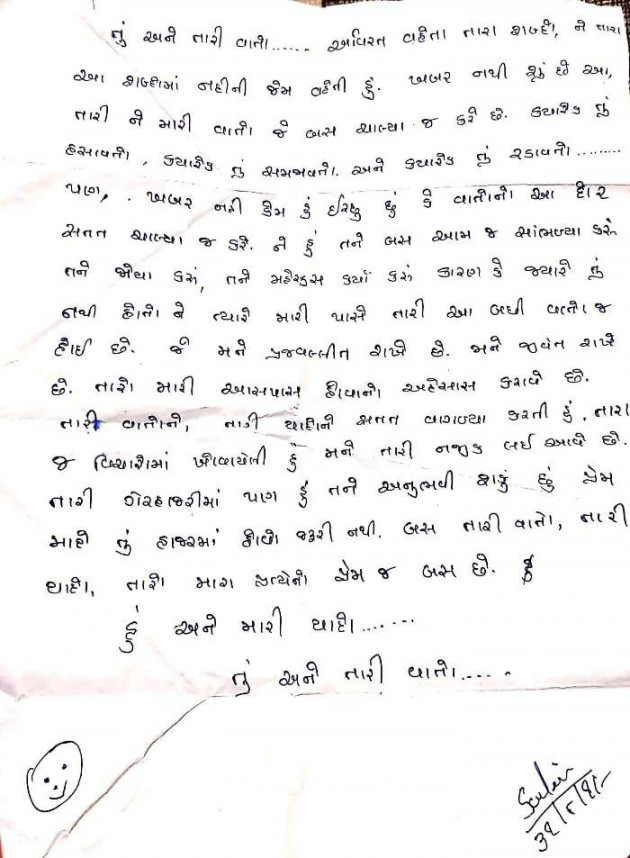 તું અને તારી વાતો...... અવિરત વહેતા તારા શબ્દો, ને તારા
આ શબ્દોમાં નદીની જેમ વહેતી હું. ખબર નથી શું છે આ,
તારી ને મારી વાતો જે બસ ચાલ્યા જ કરે છે. ક્યારેક તું
હસાવતો, ક્યારેક તું સમજાવતો. અને ક્યારેક તું રડાવતો.........
પણ,. ખબર નહી કેમ હું ઈચ્છુ છું કે વાતોનો આ દોર
સતત ચાલ્યા જ કરે. ને હું તને બસ આમ જ સાંભળ્યા કરું
તને જોયા કરું, તને મહેસુસ કર્યા કરું કારણ કે જ્યારે તું
નથી હોતો ને ત્યારે મારી પાસે તારી આ બધી વાતો જ
હોઈ છે. જે મને પ્રજવલ્લીત રાખે છે. મને જીવંત રાખે
છે. તારો મારી આસપાસ હોવાનો અહેસાસ કરાવે છે.
તારી વાતોને, તારી યાદોને સતત વાગળ્યા કરતી હું, તારા
જ વિચારોમાં ખોવાયેલી હું મને તારી નજીક લઈ આવે છે.
તારી ગેરહાજરીમાં પણ હું તને અનુભવી શકું છું પ્રેમ
માટે તું હાજરમાં હોવો જરૂરી નથી. બસ તારી વાતો, તારી
યાદો, તારો મારા પ્રત્યેનો પ્રેમ જ બસ છે.
હું અને મારી યાદો.......
તું અને તારી વાતો.....